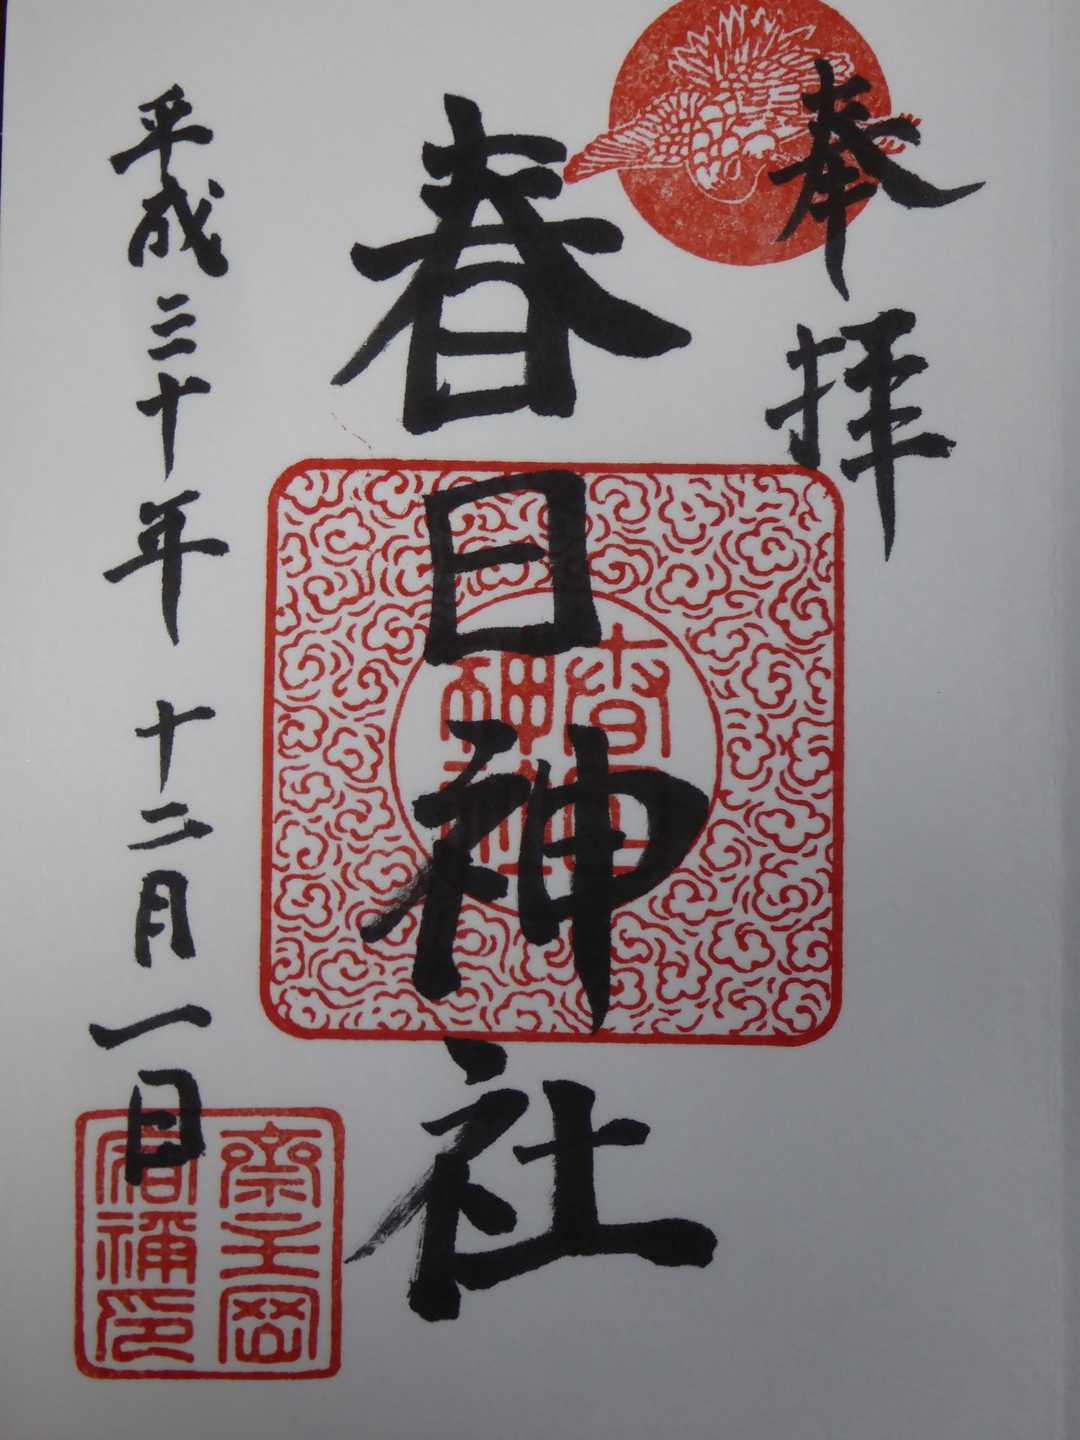 奉拝
春日神社
平成三十年 十二月一日
春日
神社